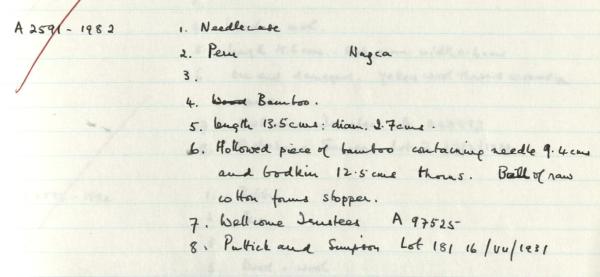 A 2591-1982 1. Needlecase
2. Peru Nazca
3.
4. Wood Bamboo.
5. length 13.5cms: diam. 2.7cms.
6. Hollowed piece of bamboo containing needle 9.4cms
and bodkin 12.5cms thorns. Ball of raw
cotton forms stopper.
7. Wellcome Trustees A 97525
8. Puttick and Simpson Lot 181 16/VII/1931